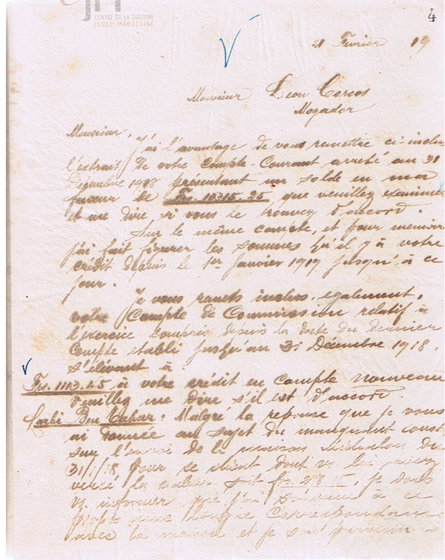 4
CENTRE DE LA CULTURE
JUDÉO-MAROCAINE
21 Février 19
Monsieur Léon Corcos
Mogador
Monsieur,
J'ai l'avantage de vous remettre ci-inclus
l'extrait de votre Compte-Courant arrêté au 31
Décembre 1918 présentant un solde en ma
faveur de Frs. que veuillez examiner
et me dire, si vous le trouvez d'accord.
Sur le même compte, et pour mémoire
j'ai fait figurer les sommes qu'il y à votre
crédit depuis le 1er Janvier 1919 jusqu'à ce
jour.
Je vous remets inclus, également,
votre Compte de Commission relatif à
l'exercice compris depuis la date du dernier
Compte établi jusqu'au 31 Décembre 1918,
s'élevant à
Frs. 1183.45 à votre crédit en compte nouveau
Veuillez me dire s'il est d'accord.
Larbi Ben : Malgré la réponse que je vous
ai donnée au sujet du manquant const
sur l'envoi de
31/1/18 pour ce client dont vs
versé la valeur soit frs. 28 je dois
vs informer que j'ai à ce
propos une longue correspondance
avec la et je suis parvenu à